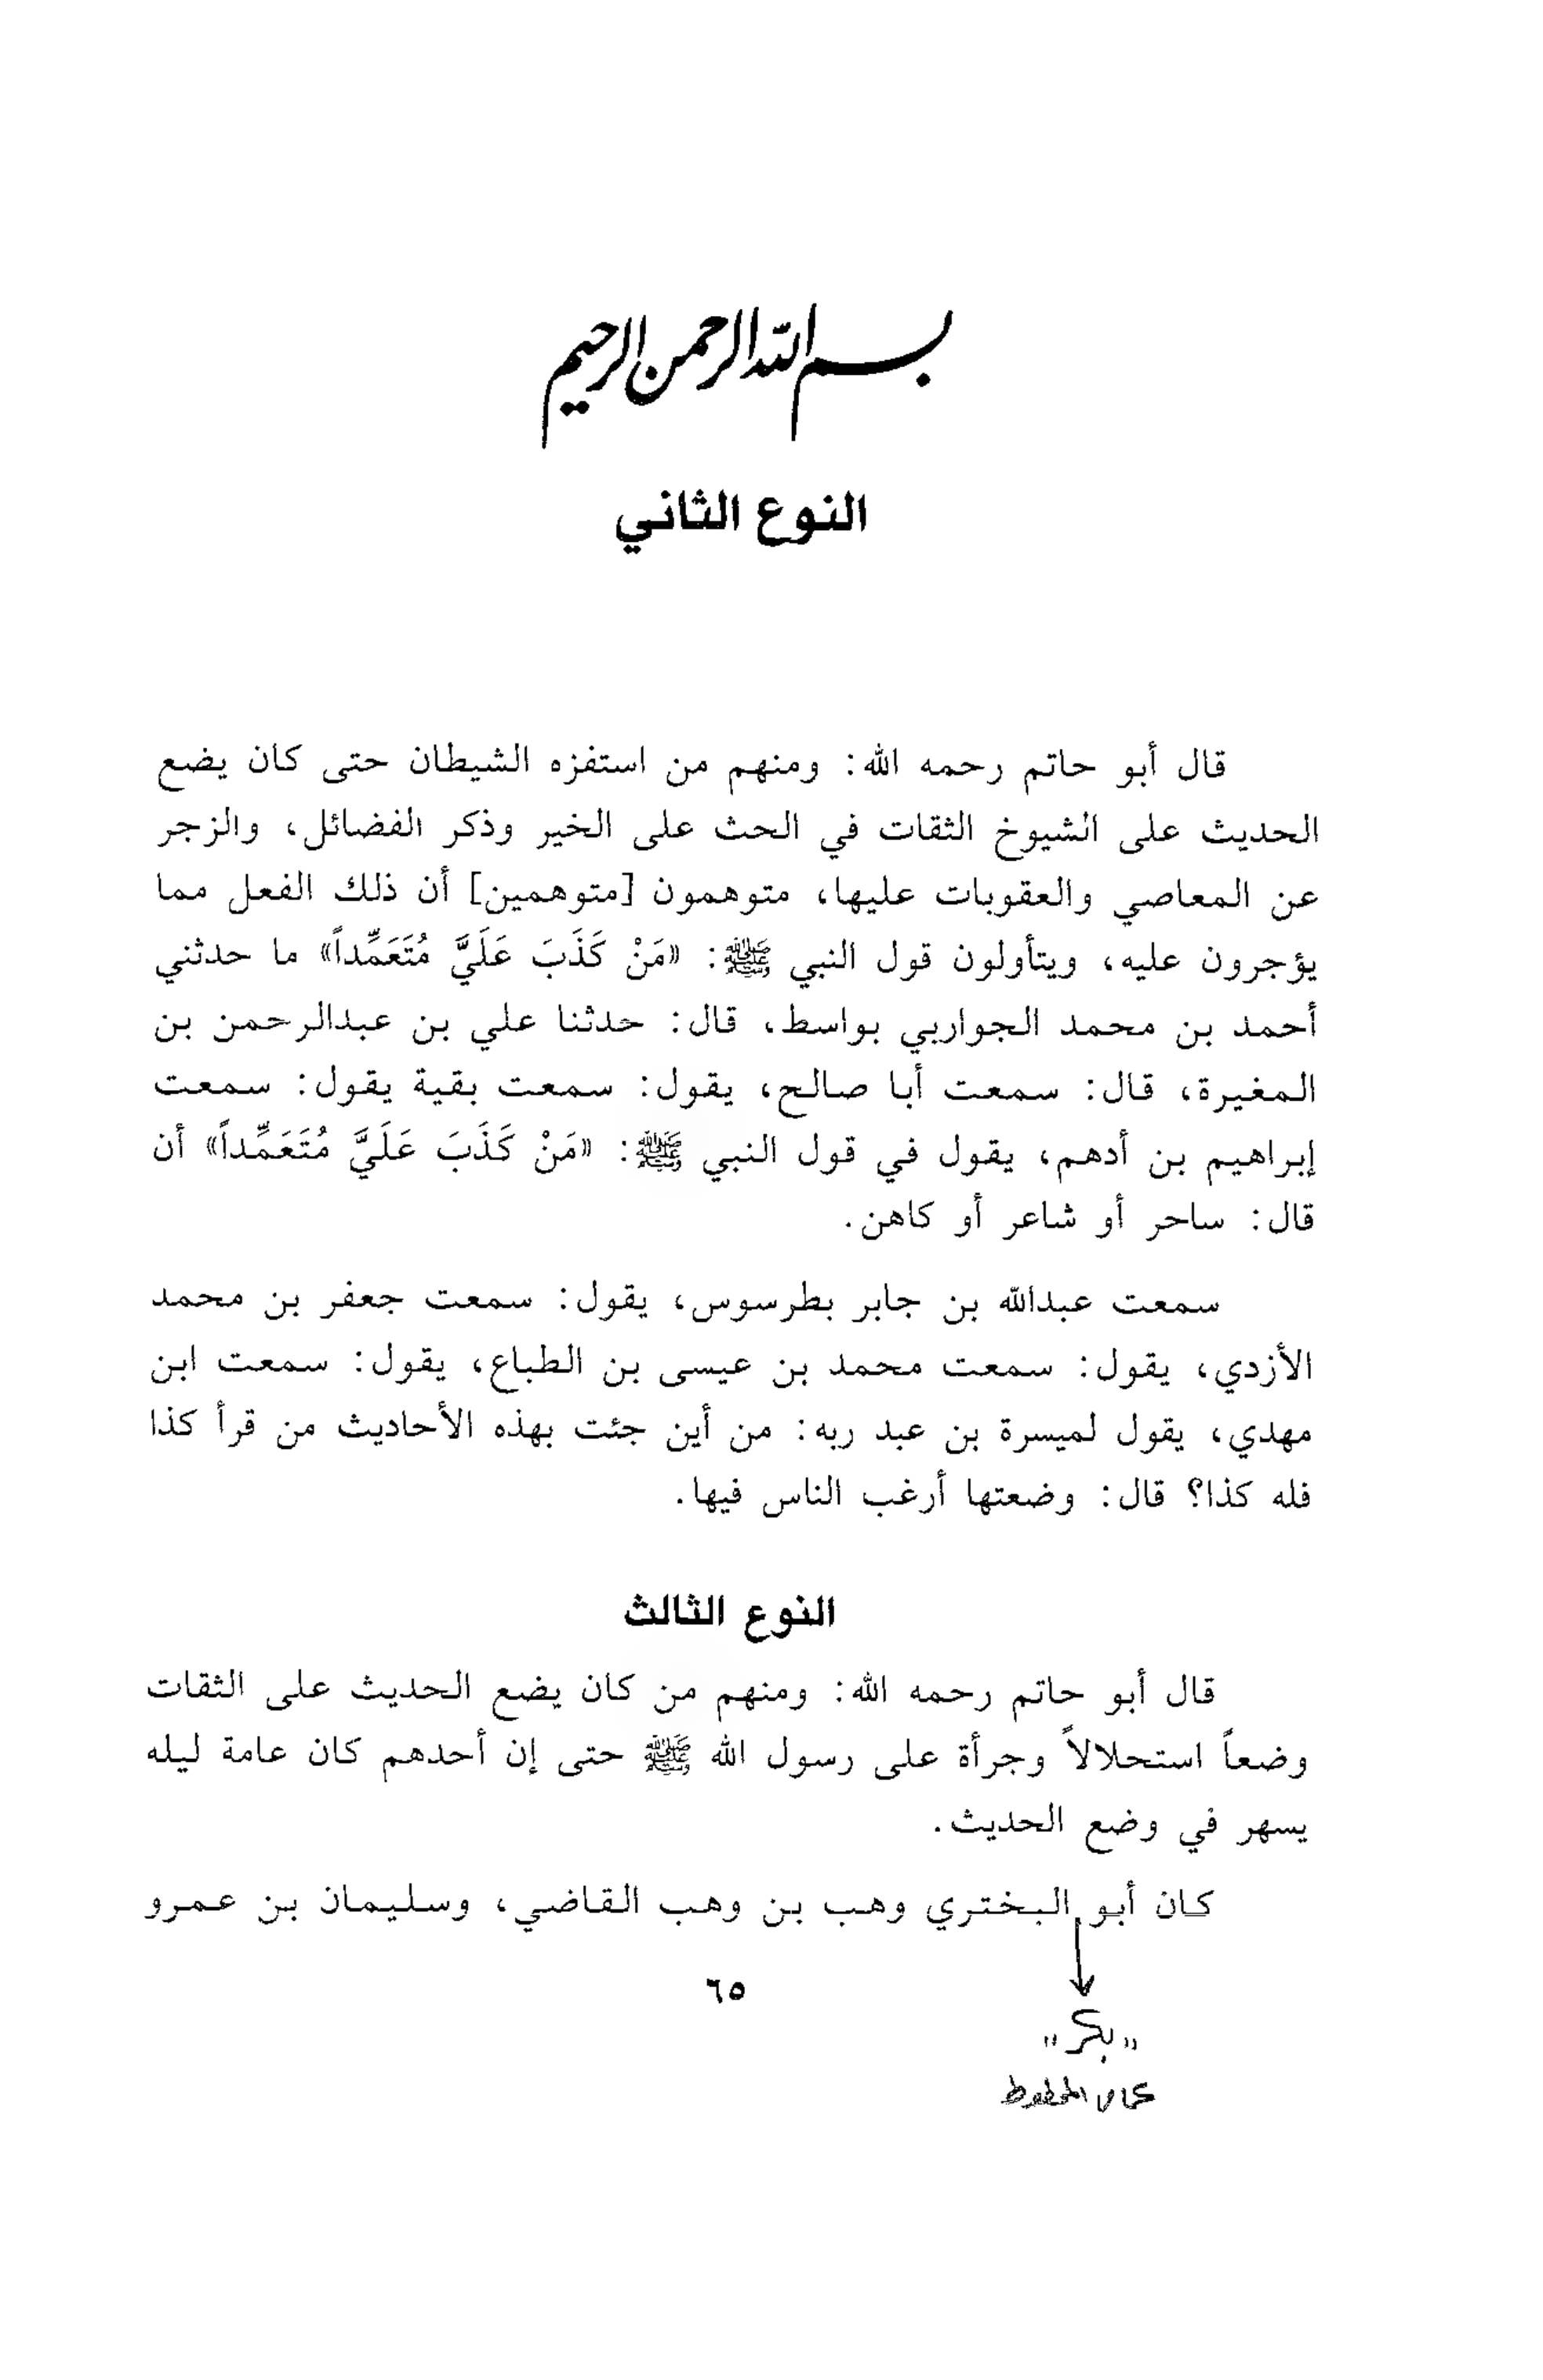 بسم الله الرحمن الرحيم
النوع الثاني
قال أبو حاتم رحمه الله: ومنهم من استفزه الشيطان حتى كان يضع
الحديث على الشيوخ الثقات في الحث على الخير وذكر الفضائل، والزجر
عن المعاصي والعقوبات عليها، متوهمون [متوهمين] أن ذلك الفعل مما
يؤجرون عليه، ويتأولون قول النبي ﷺ: «مَنْ كَذَبَ عَلَيَّ مُتَعَمِّداً» ما حدثني
أحمد بن محمد الجواربي بواسط، قال: حدثنا علي بن عبدالرحمن بن
المغيرة، قال: سمعت أبا صالح، يقول: سمعت بقية يقول: سمعت
إبراهيم بن أدهم، يقول في قول النبي ﷺ: «مَنْ كَذَبَ عَلَيَّ مُتَعَمِّداً» أن
قال: ساحر أو شاعر أو كاهن.
سمعت عبدالله بن جابر بطرسوس، يقول: سمعت جعفر بن محمد
الأزدي، يقول: سمعت محمد بن عيسى بن الطباع، يقول: سمعت ابن
مهدي، يقول لميسرة بن عبد ربه: من أين جئت بهذه الأحاديث من قرأ كذا
فله كذا؟ قال: وضعتها أرغب الناس فيها.
النوع الثالث
قال أبو حاتم رحمه الله: ومنهم من كان يضع الحديث على الثقات
وضعاً استحلالاً وجرأة على رسول الله ﷺ حتى إن أحدهم كان عامة ليله
يسهر في وضع الحديث.
كان أبو البختري وهب بن وهب القاضي، وسليمان بن عمرو
٦٥
"بكر"